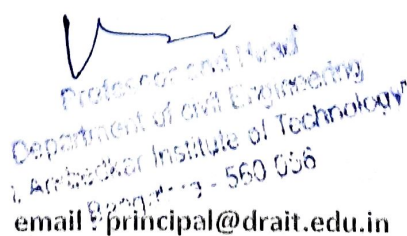 Professor and Head
Department of Civil Engineering
Ambedkar Institute of Technology"
- 560 056
email : principal@drait.edu.in